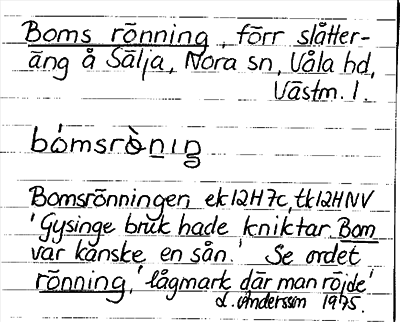 Boms rönning, förr slåtter-
äng å Sälja, Nora sn, Våla hd,
Västm. l.
bómsrò̀nıŋ
Bomsrönningen ek 12H7c, tk12HNV
'Gysinge bruk hade kniktar Bom
var kanske en sån.' Se ordet
rönning, 'lågmark där man röjde'
L. Andersson 1975.